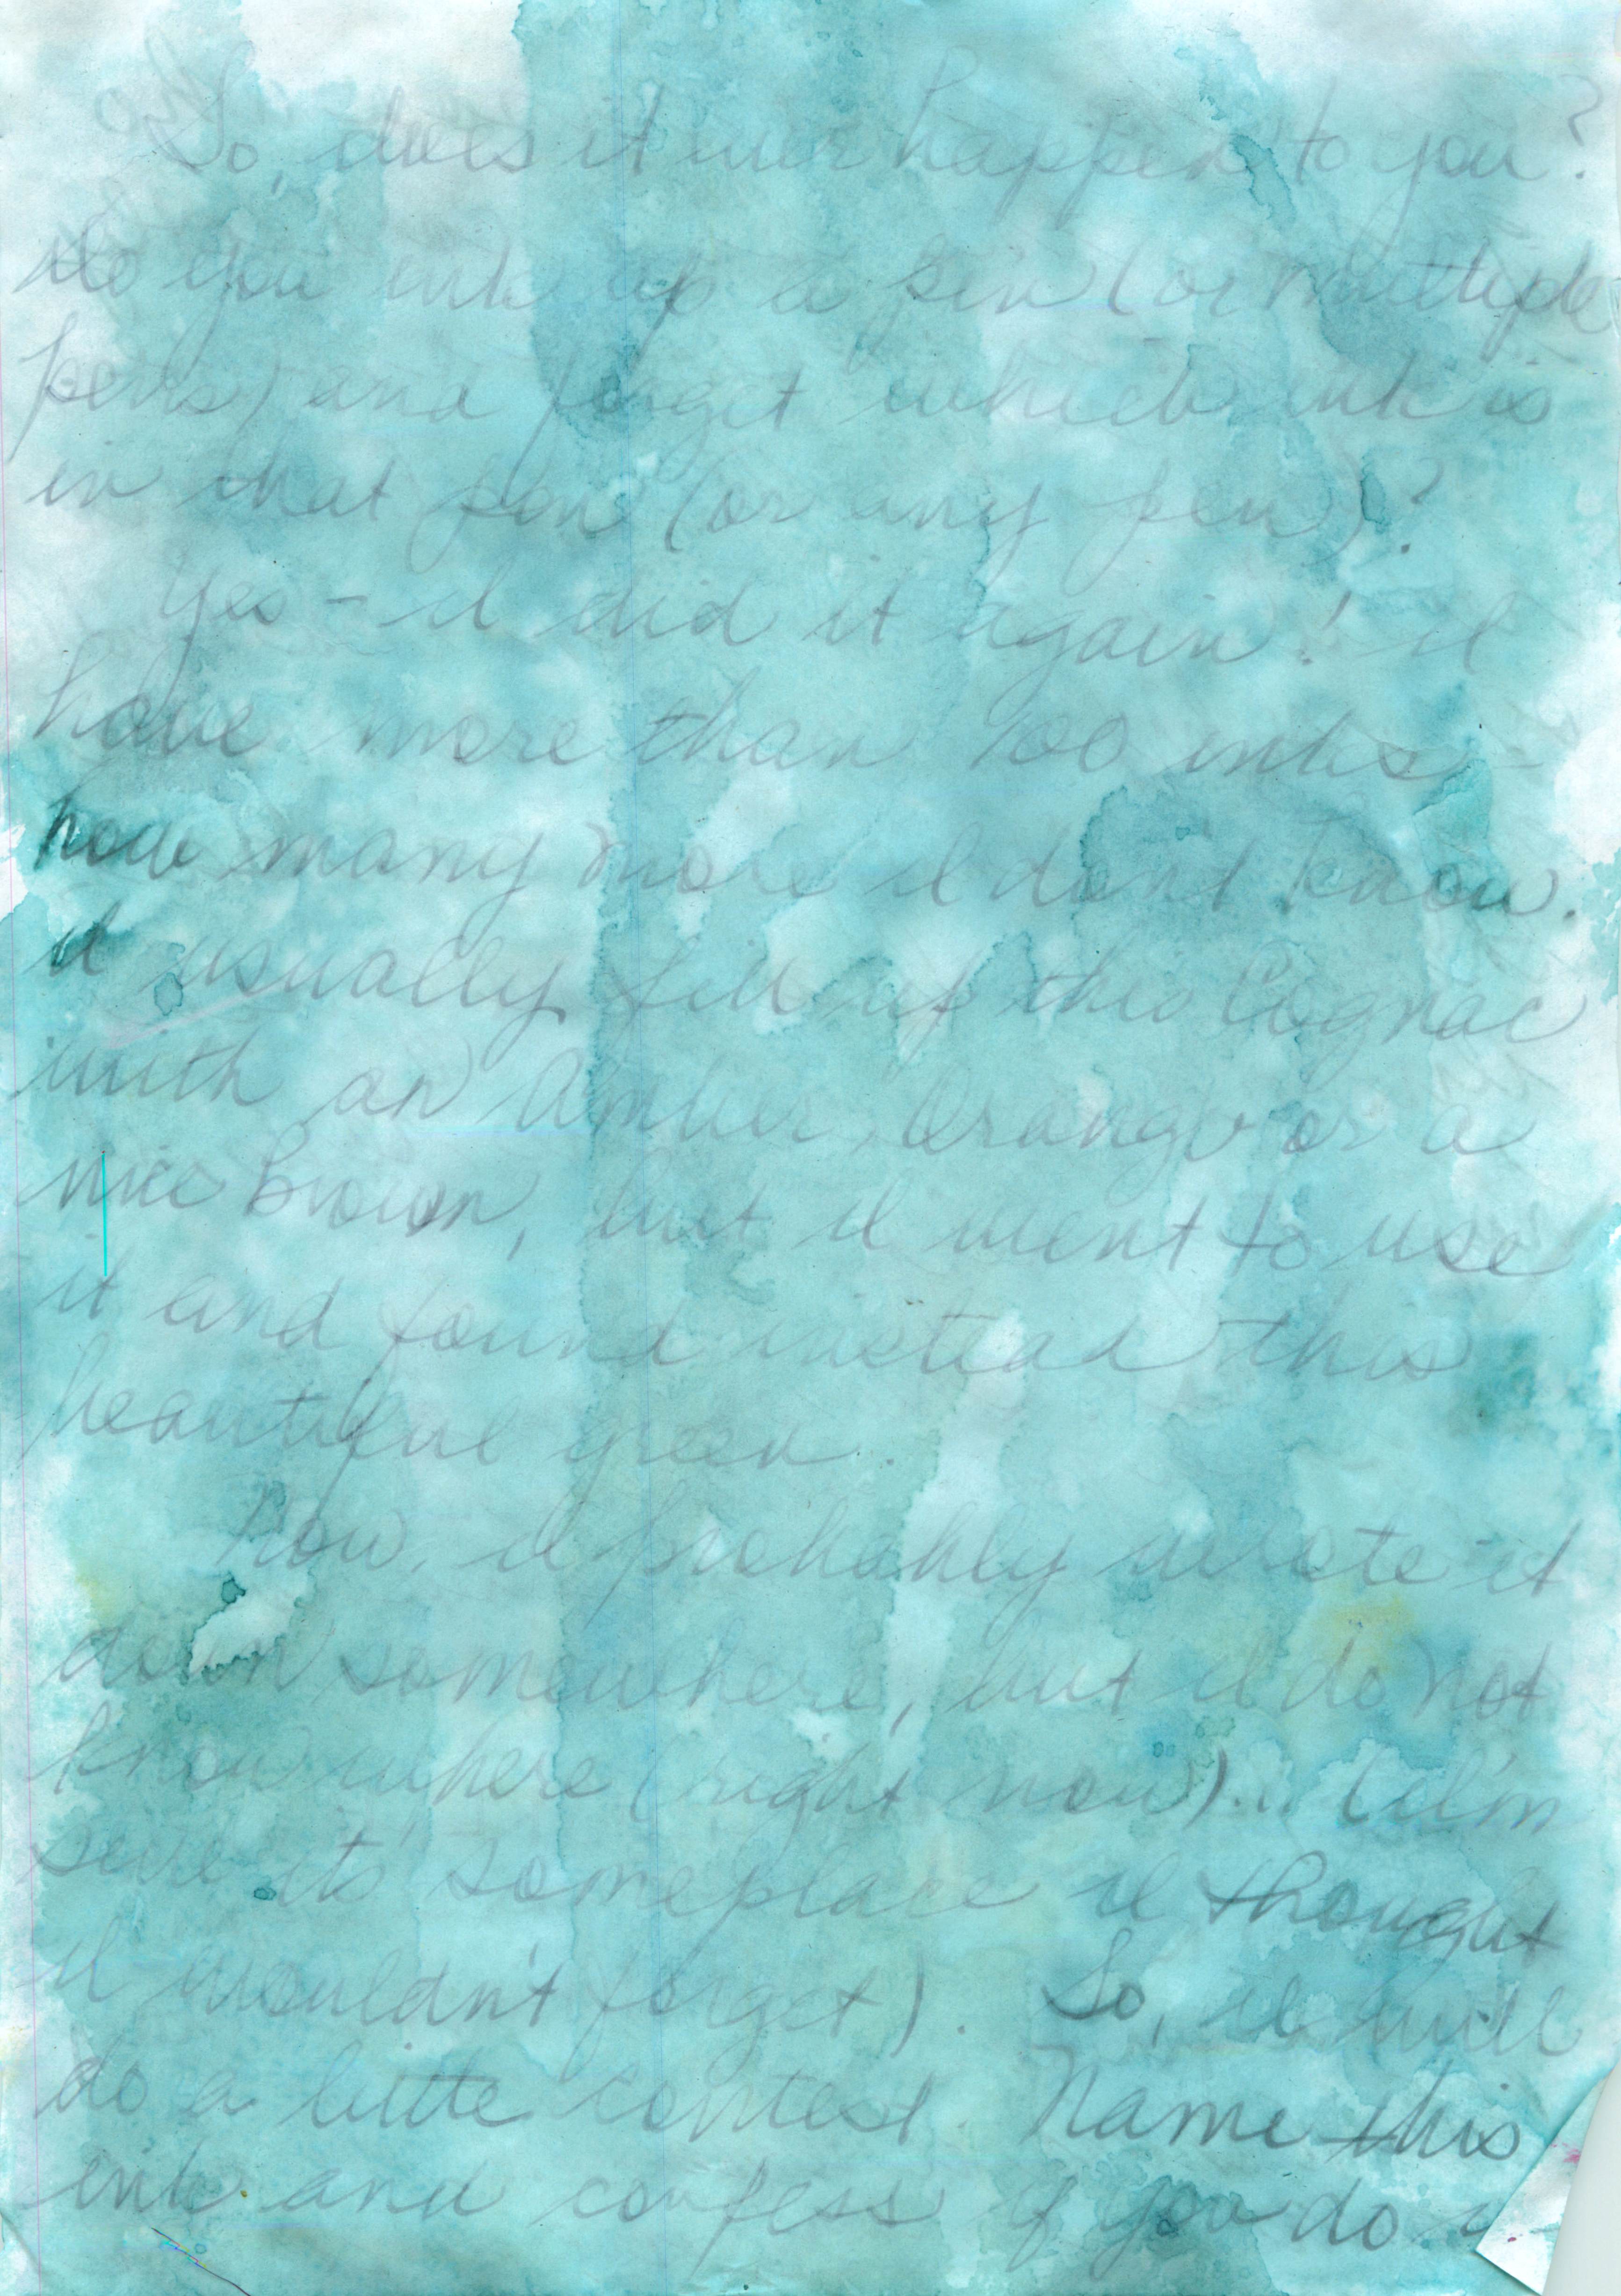 So, does it ever happen to you?
Do you ink up a pen (or multiple
pens) and forget which ink is
in that pen (or any pen)?
Yes - I did it again! I
have more than 100 inks -
how many more I don't know.
I usually fill up this Cognac
with an Amber, Orange or a
nice Brown, but I went to use
it and found instead this
beautiful green.
Now, I probably wrote it
down somewhere, but I do not
know where (right now)... (I'm
sure it's someplace I thought
I wouldn't forget). So, I will
do a little contest. Name this
ink and confess if you do